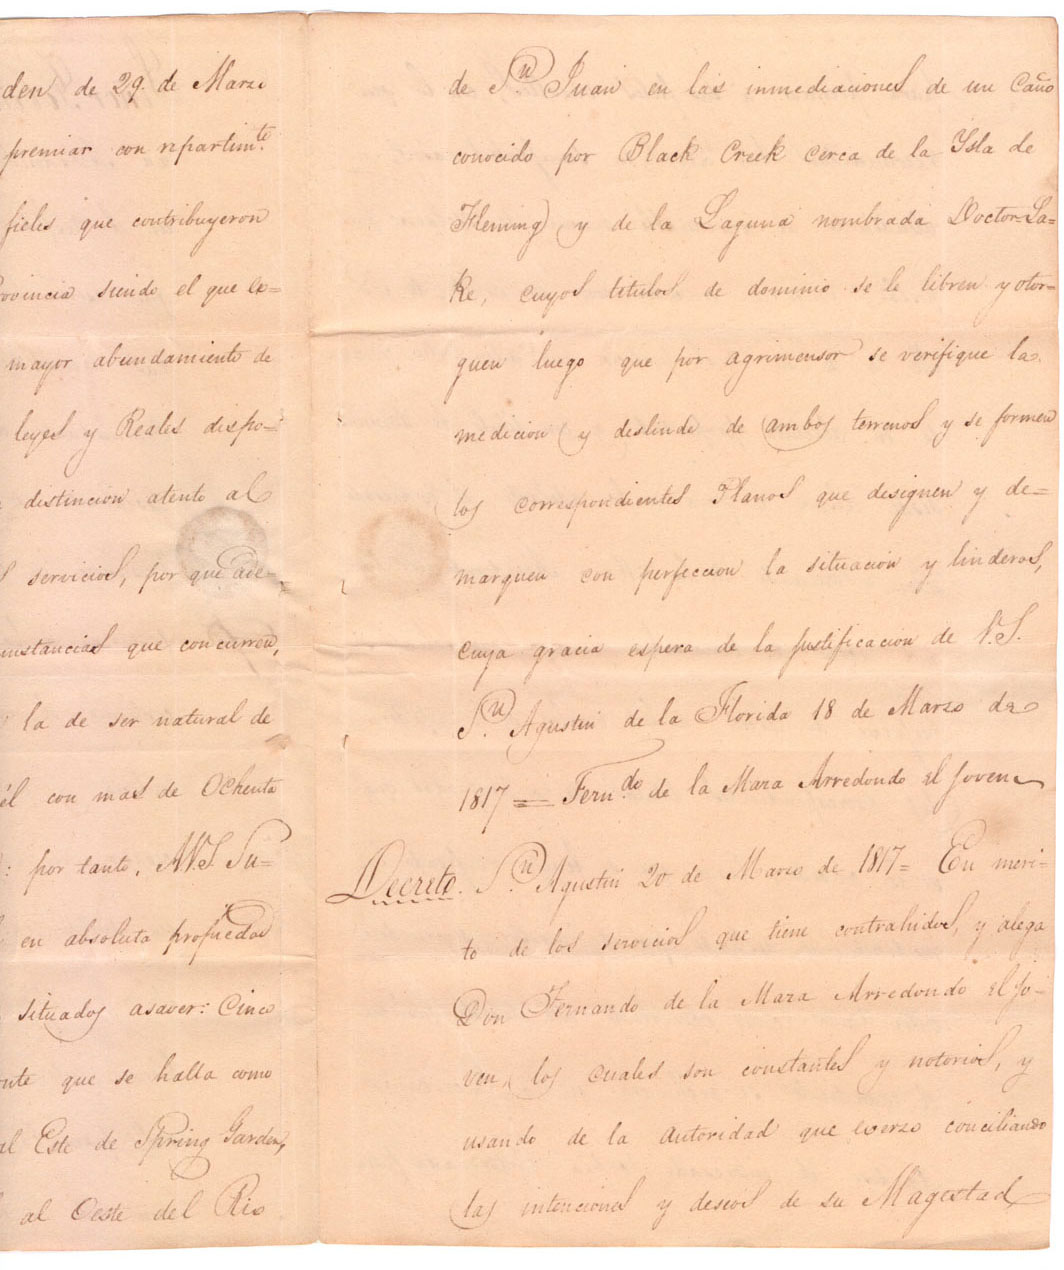 den de 29. de Marzo
premiar con repartimte.
fieles que contribuyeron
rovincia siendo el que ex=
mayor abundamiento de
leyes y Reales dispo=
distincion atento al
servicios, por que ade=
unstancias que concurren,
la de ser natural de
él con mas de Ochenta
: por tanto, A V.S. Su=
en absoluta propiedad
situados asaver: Cinco
onte que se halla como
al Este de Spring Garden,
al Oeste del Rio
de Sn. Juan en las inmediaciones de un Caño
conocido por Black Creek cerca de la Ysla de
Fleming y de la Laguna nombrada Doctor-La=
ke, cuyos titulos de dominio se le libren y otor=
guen luego que por agrimensor se verifique la
medicion y deslinde de ambos terrenos y se formen
los correspondientes Planos que designen y de=
marquen con perfeccion la situacion y linderos,
cuya gracia espera de la justificacion de V.S.
Sn. Agustin de la Florida 18 de Marzo de
1817 = Fern.do de la Maza Arredondo el joven
Decreto. Sn. Agustin 20 de Marzo de 1817 = En meri-
to de los servicios que tiene contrahidos, y alega
Don Fernando de la Maza Arredondo el jo-
ven, los cuales son constantes y notorios, y
usando de la autoridad que exerzo conciliando
las intenciones y deseos de su Magestad